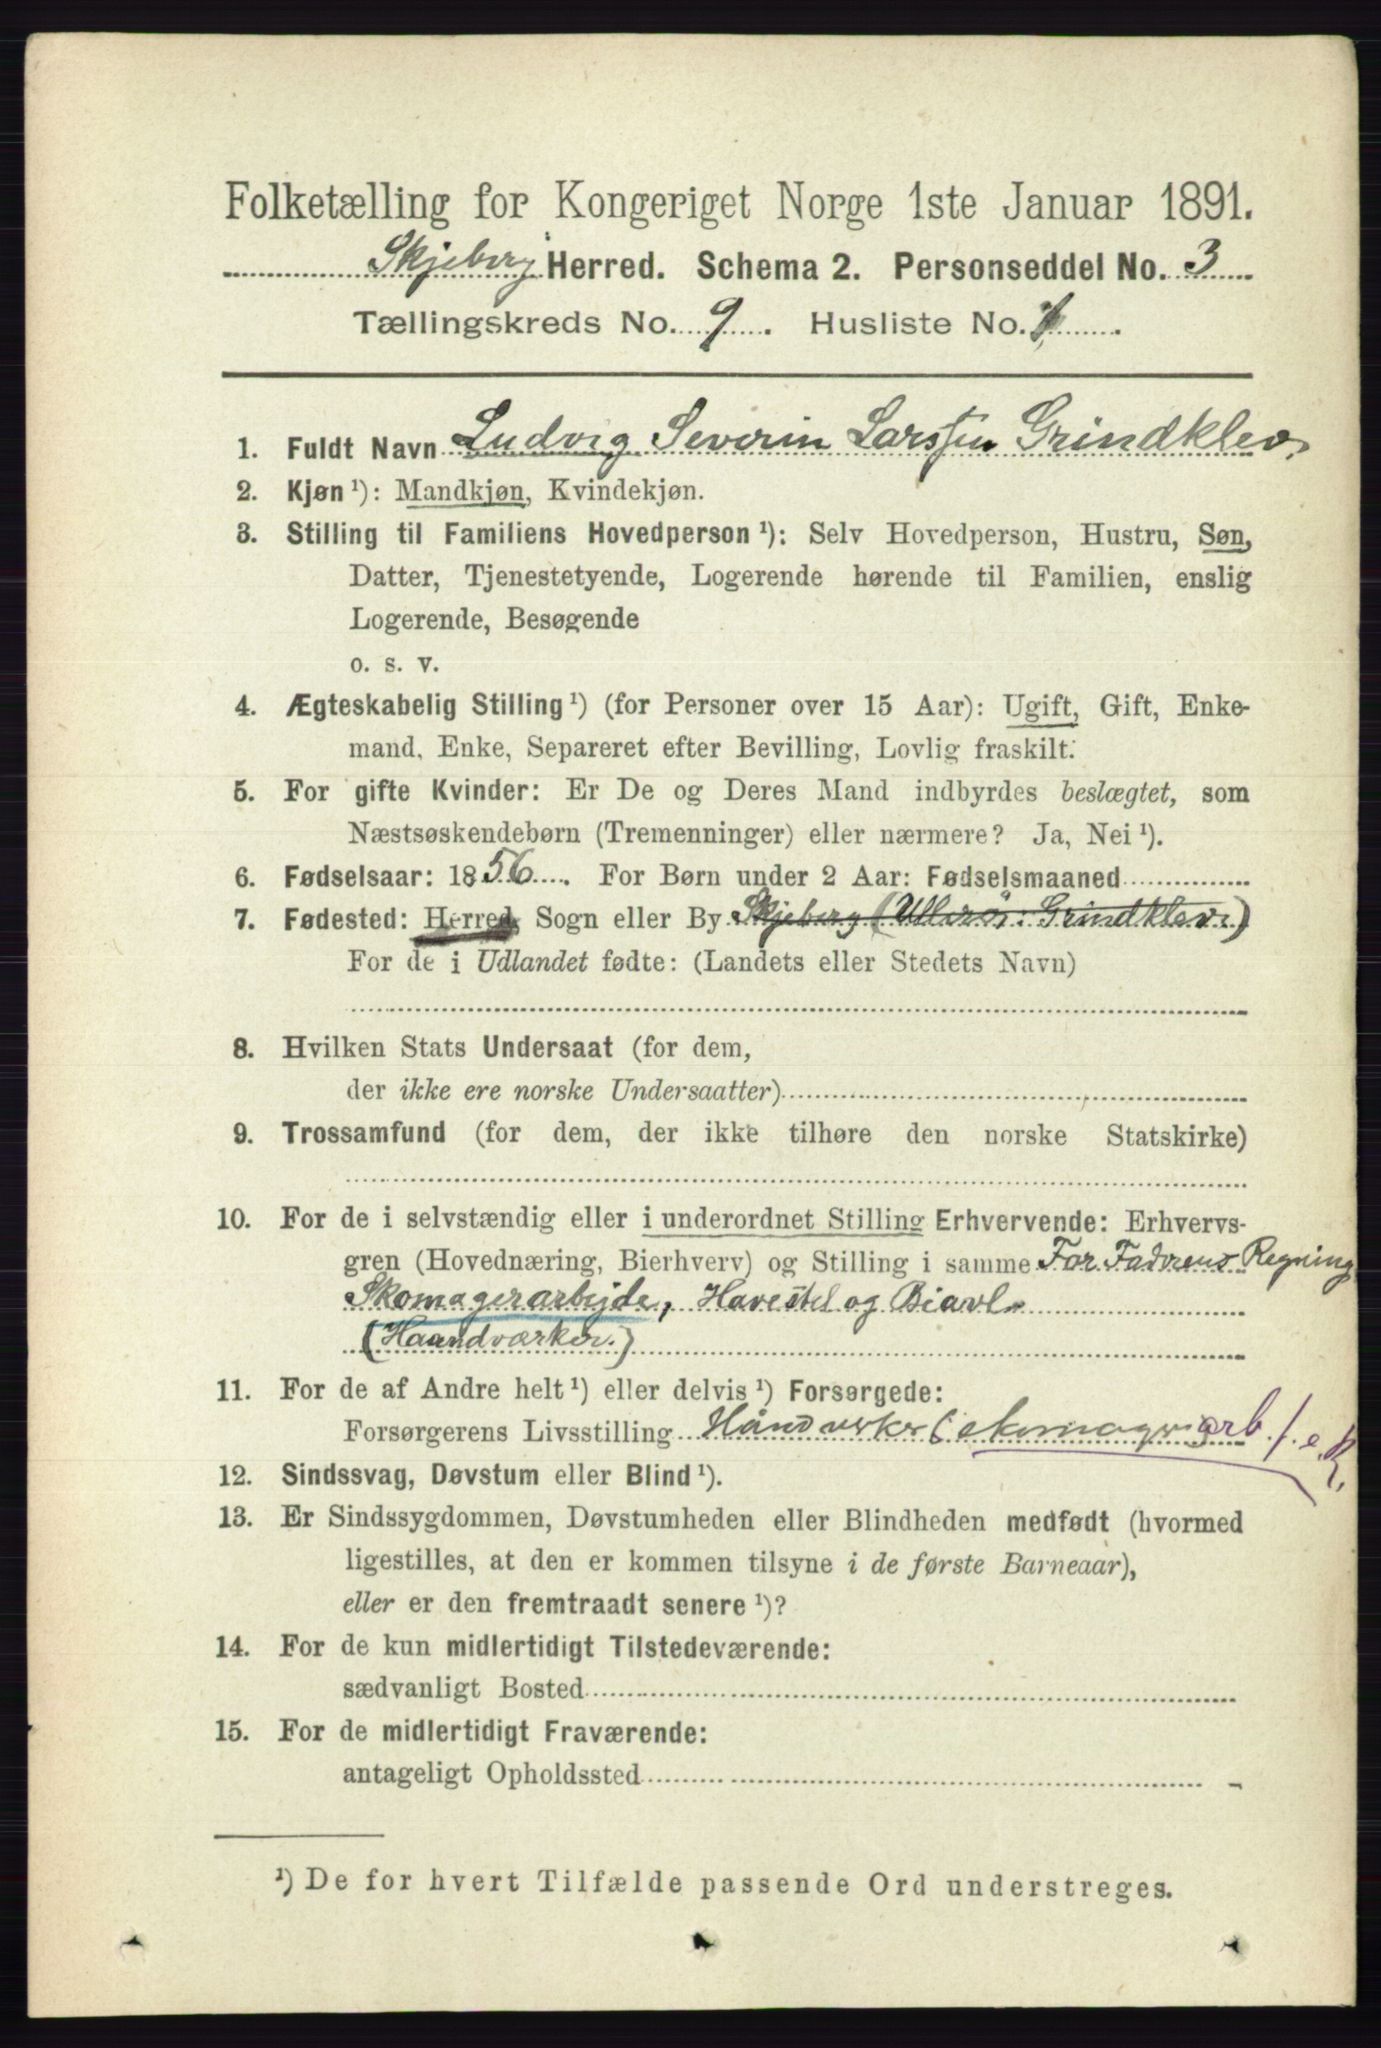 Folketælling for Kongeriget Norge 1ste Januar 1891.
Skjeberg Herred. Schema 2. Personseddel No. 3
Tællingskreds No. 9. Husliste No. 1.
1. Fuldt Navn Ludvig Severin Larssen Grindklev.
2. Kjøn ¹): Mandkjøn, Kvindekjøn.
3. Stilling til Familiens Hovedperson ¹): Selv Hovedperson, Hustru, Søn,
Datter, Tjenestetyende, Logerende hørende til Familien, enslig
Logerende, Besøgende
o. s. v.
4. Ægteskabelig Stilling ¹) (for Personer over 15 Aar): Ugift, Gift, Enke-
mand, Enke, Separeret efter Bevilling, Lovlig fraskilt.
5. For gifte Kvinder: Er De og Deres Mand indbyrdes beslægtet, som
Næstsøskendebørn (Tremenninger) eller nærmere? Ja, Nei ¹).
6. Fødselsaar: 1856. For Børn under 2 Aar: Fødselsmaaned
7. Fødested: Herred, Sogn eller By Skjeberg (Ullerøi: Grindklev.)
For de i Udlandet fødte: (Landets eller Stedets Navn)
8. Hvilken Stats Undersaat (for dem,
der ikke ere norske Undersaatter)
9. Trossamfund (for dem, der ikke tilhøre den norske Statskirke)
10. For de i selvstændig eller i underordnet Stilling Erhvervende: Erhvervs-
gren (Hovednæring, Bierhverv) og Stilling i samme For Fadrens Regning
Skomagerarbejde, Havestel og Biavl.
(Haandværker.)
11. For de af Andre helt ¹) eller delvis ¹) Forsørgede:
Forsørgerens Livsstilling Håndverker (skomagerarb. f. e. R.
12. Sindssvag, Døvstum eller Blind ¹).
13. Er Sindssygdommen, Døvstumheden eller Blindheden medfødt (hvormed
ligestilles, at den er kommen tilsyne i de første Barneaar),
eller er den fremtraadt senere ¹)?
14. For de kun midlertidigt Tilstedeværende:
sædvanligt Bosted
15. For de midlertidigt Fraværende:
antageligt Opholdssted
¹) De for hvert Tilfælde passende Ord understreges.